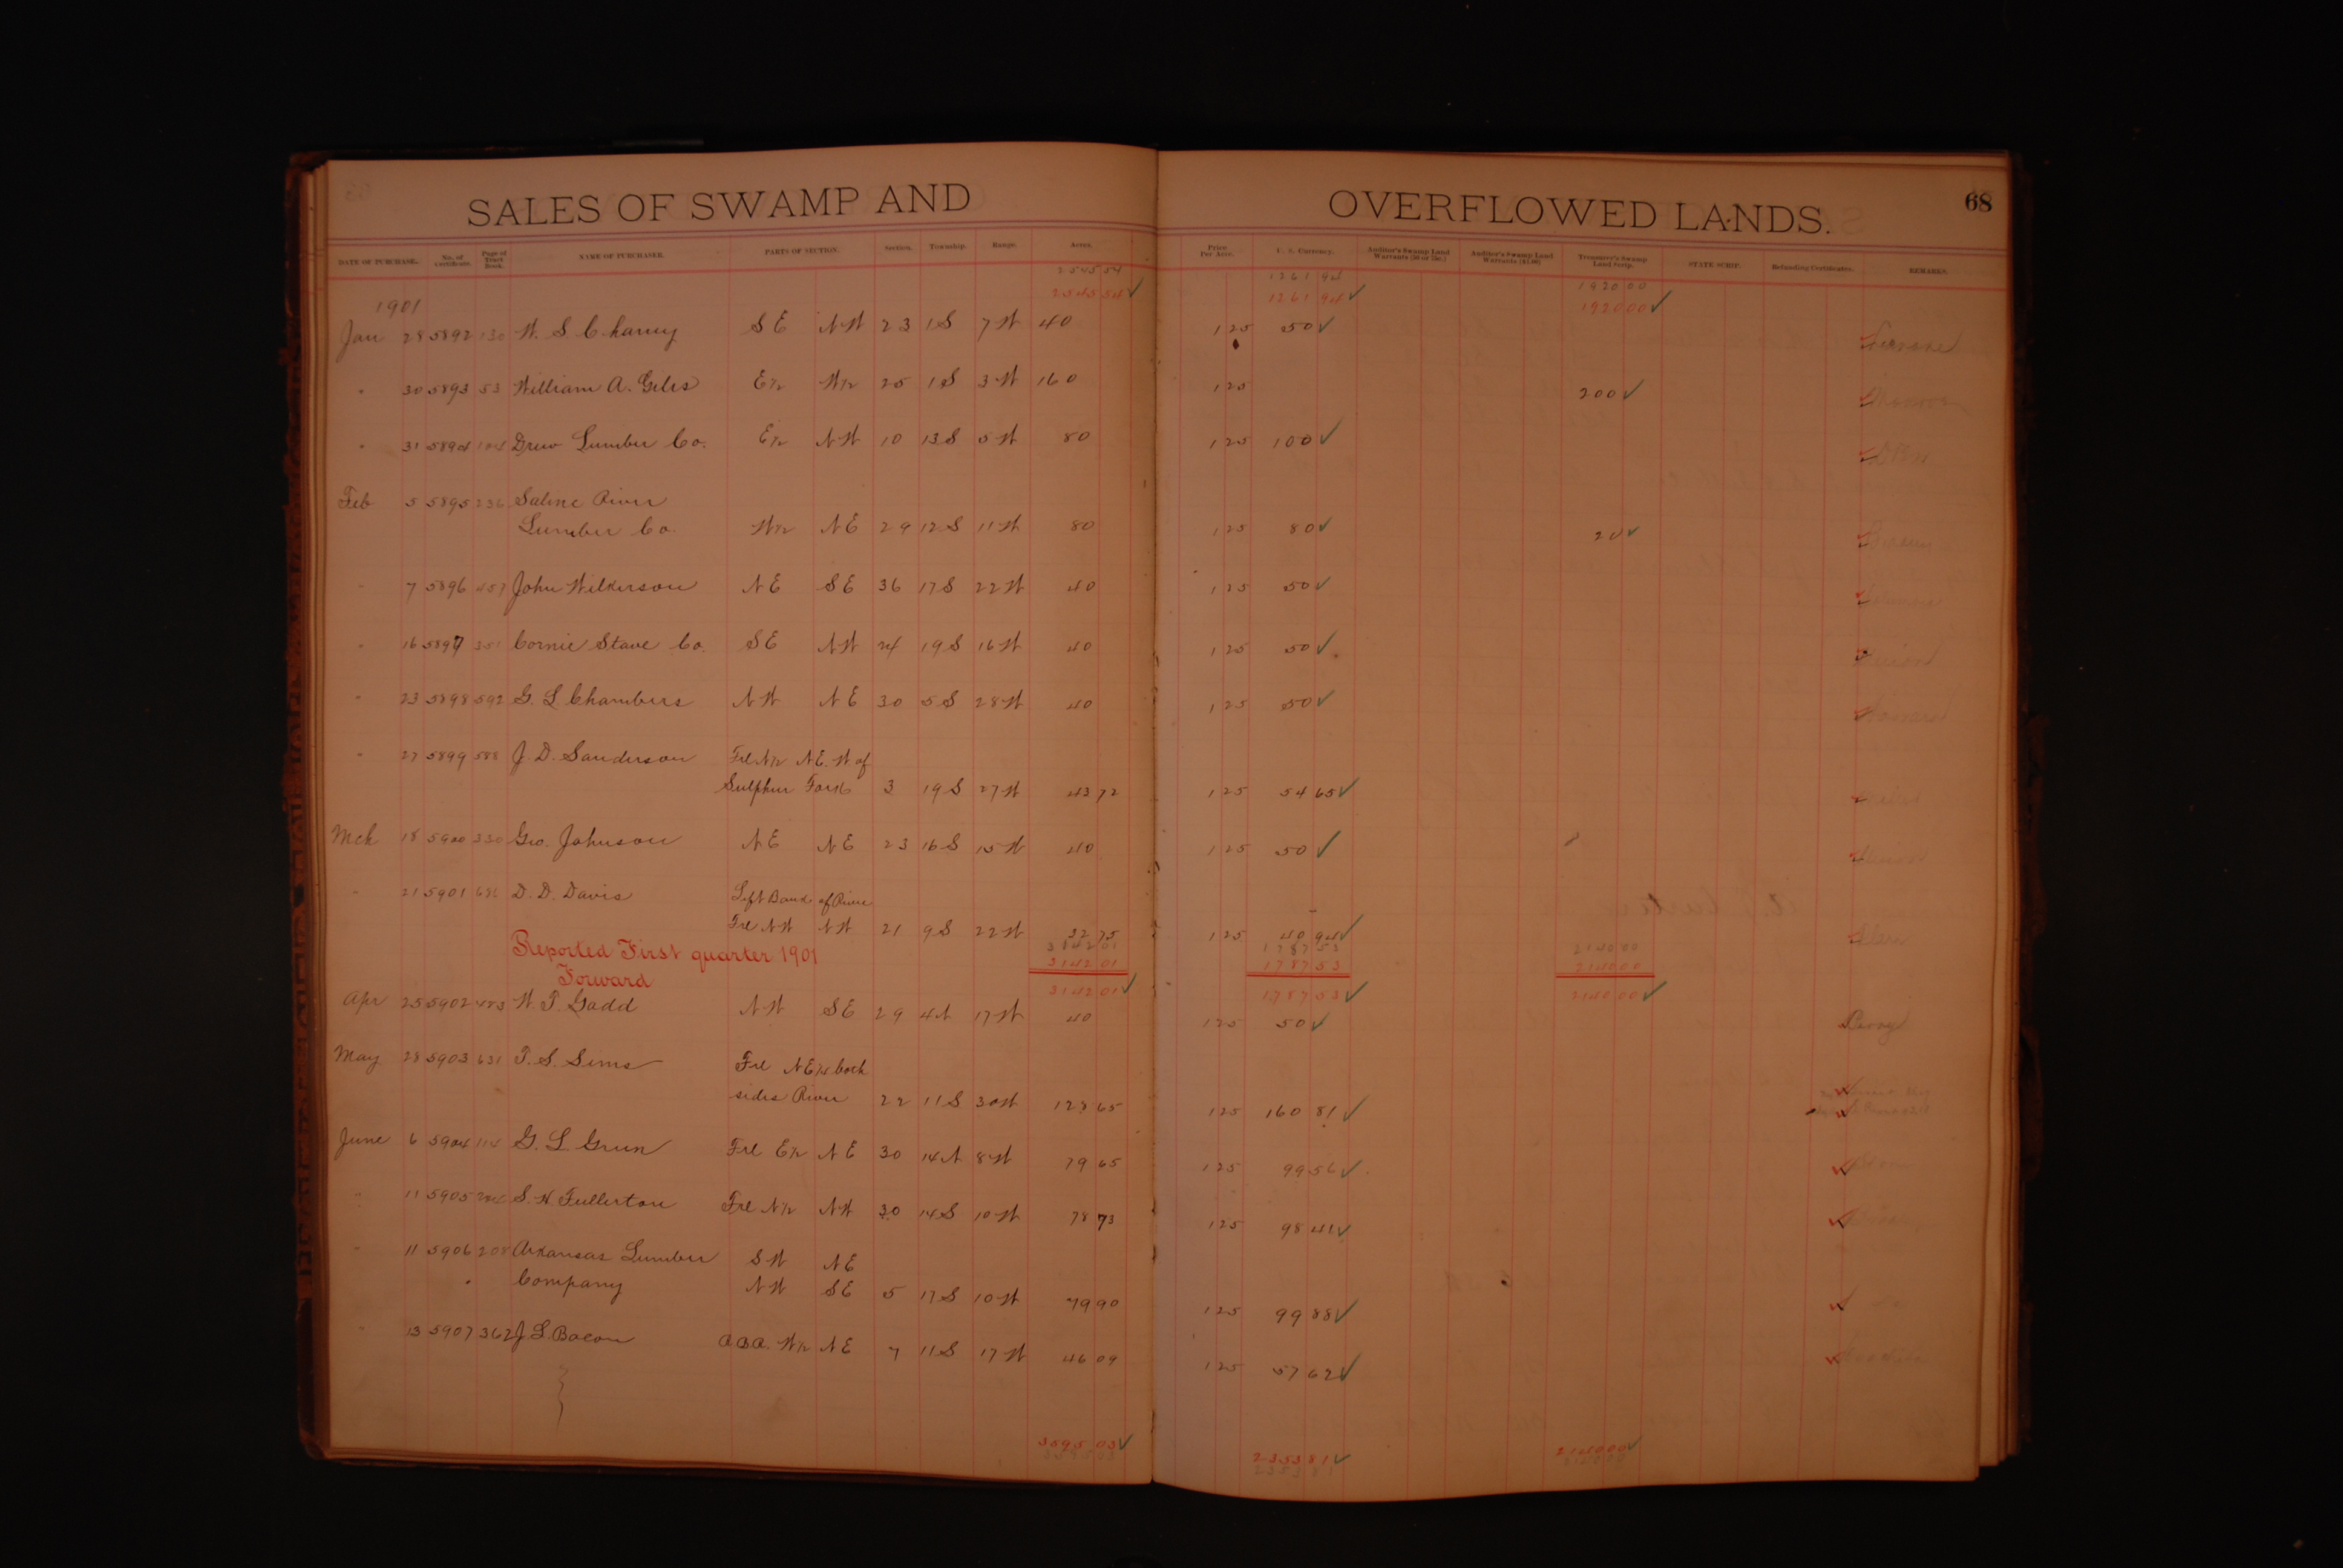 SALES OF SWAMP AND OVERFLOWED LANDS. 68
DATE OF PURCHASE. No. of Certificate. Page of Tract Book. NAME OF PURCHASER. PARTS OF SECTION. Section. Township. Range. Acres. Price Per Acre. U. S. Currency. Auditor's Swamp Land Warrants (50 or 75c.) Auditor's Swamp Land Warrants ($1.00) Treasurer's Swamp Land Scrip. STATE SCRIP. Refunding Certificates. REMARKS.
2545 54 1261 94 1920 00
1901 2545 54 ✓ 1261 94 ✓ 1920 00 ✓
Jan 28 5892 130 W. S. Charny S E N W 23 1 S 7 W 40 1 25 50 ✓
" 30 5893 53 William A. Giles E ½ W ½ 25 1 S 3 W 160 1 25 200 ✓
" 31 5894 104 Drew Lumber Co. E ½ N W 10 13 S 5 W 80 1 25 100 ✓
Feb 5 5895 236 Saline River
Lumber Co. W ½ N E 29 12 S 11 W 80 1 25 80 ✓ 20 ✓
" 7 5896 457 John Wilkerson N E S E 36 17 S 22 W 40 1 25 50 ✓
" 16 5897 351 Cornie Stave Co. S E N W 24 19 S 16 W 40 1 25 50 ✓ Union
" 23 5898 592 G. L Chambers N W N E 30 5 S 28 W 40 1 25 50 ✓ Howard
" 27 5899 588 J. D. Sanderson Frl N ½ N E. W of
Sulphur Fork 3 19 S 27 W 43 72 1 25 54 65 ✓
Mch 18 5900 330 Geo. Johnson N E N E 23 16 S 15 W 40 1 25 50 ✓ Union
" 21 5901 686 D. D. Davis Left Bank of River
Frl N W N W 21 9 S 22 W 32 75 1 25 40 94 ✓ Clark
3142 01 1787 53 2140 00
Reported First quarter 1901 3142 01 1787 53 2140 00
Forward 3142 01 ✓ 1787 53 ✓ 2140 00 ✓
Apr 25 5902 483 W. T. Gadd N W S E 29 4 N 17 W 40 1 25 50 ✓ Perry
May 28 5903 631 T. S. Sims Frl N E ¼ both
sides River 22 11 S 30 W 128 65 1 25 160 81 ✓
June 6 5904 114 G. L. Green Frl E ½ N E 30 14 N 8 W 79 65 1 25 99 56 ✓
" 11 5905 204 S. H. Fullerton Frl N ½ N W 30 14 S 10 W 78 73 1 25 98 41 ✓
" 11 5906 208 Arkansas Lumber S W N E
" Company N W S E 5 17 S 10 W 79 90 1 25 99 88 ✓
" 13 5907 362 J. L. Bacon W ½ N E 7 11 S 17 W 46 09 1 25 57 62 ✓
3595 03 ✓ 2353 81 ✓ 2140 00 ✓
3595 03 2353 81 2140 00